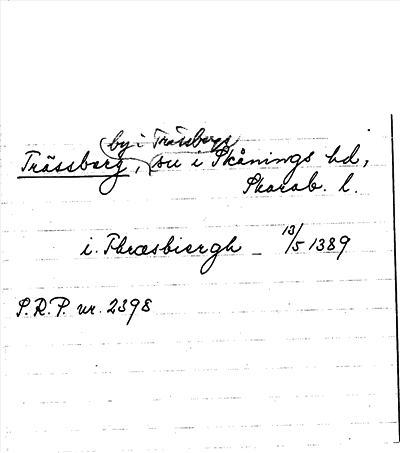 by i Trässbergs
Trässberg, sn i Skånings hd,
Skarab. l.
i. Thræsbiergh – 13/5 1389
S.R.P. nr. 2398